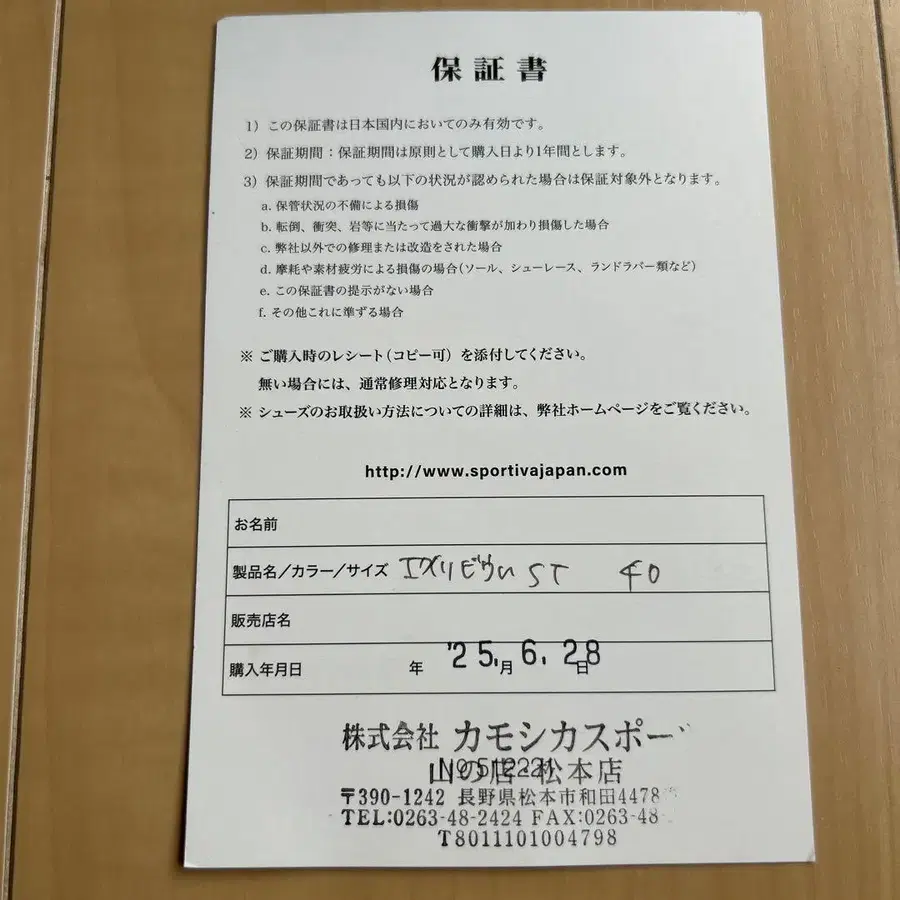 保証書
1）この保証書は日本国内においてのみ有効です。
2）保証期間：保証期間は原則として購入日より1年間とします。
3）保証期間であっても以下の状況が認められた場合は保証対象外となります。
a. 保管状況の不備による損傷
b. 転倒、衝突、岩等に当たって過大な衝撃が加わり損傷した場合
c. 弊社以外での修理または改造をされた場合
d. 摩耗や素材疲労による損傷の場合（ソール、シューレース、ランドラバー類など）
e. この保証書の提示がない場合
f. その他これに準ずる場合
※ ご購入時のレシート（コピー可）を添付してください。
無い場合には、通常修理対応となります。
※ シューズのお取扱い方法についての詳細は、弊社ホームページをご覧ください。
http://www.sportivajapan.com
お名前
製品名／カラー／サイズ ST 40
販売店名
購入年月日 年 '25.月 6.28日
株式会社 カモシカスポー
山の店・松本店
〒390-1242 長野県松本市和田4478
TEL:0263-48-2424 FAX:0263-48
T8011101004798